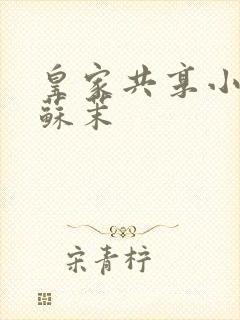 皇家共享小
蘇茉
宋青柠